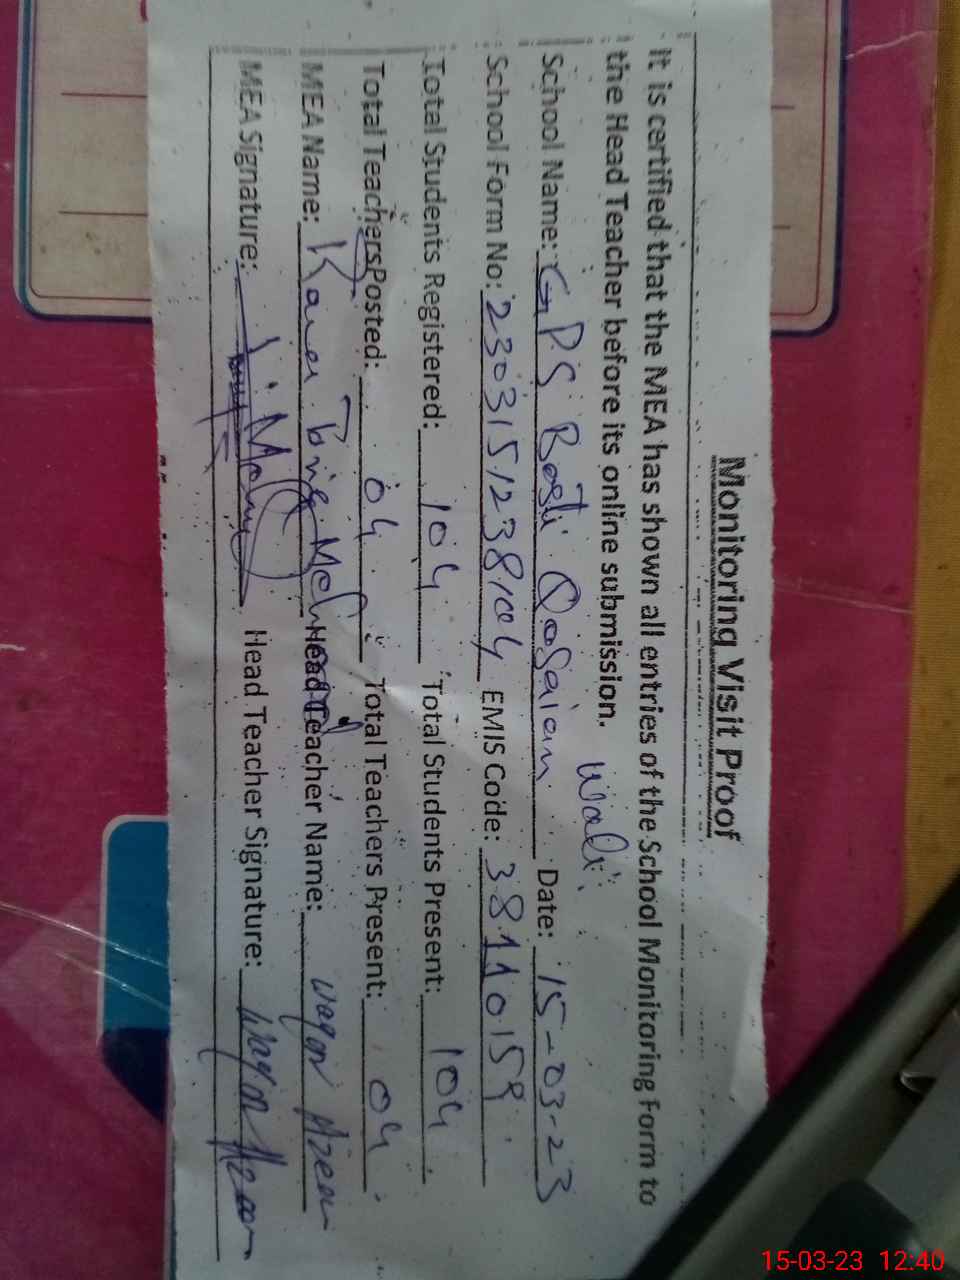 Monitoring Visit Proof
It is certified that the MEA has shown all entries of the School Monitoring Form to
the Head Teacher before its online submission.
School Name: GPS Basti Qosaian Wali Date: 15-03-23
School Form No: 2303151238104 EMIS Code: 38110159
Total Students Registered: 104 Total Students Present: 104
Total Teachers Posted: 04 Total Teachers Present: 04
MEA Name: Head Teacher Name: Waqar
MEA Signature: Head Teacher Signature: Waqar
15-03-23 12:40